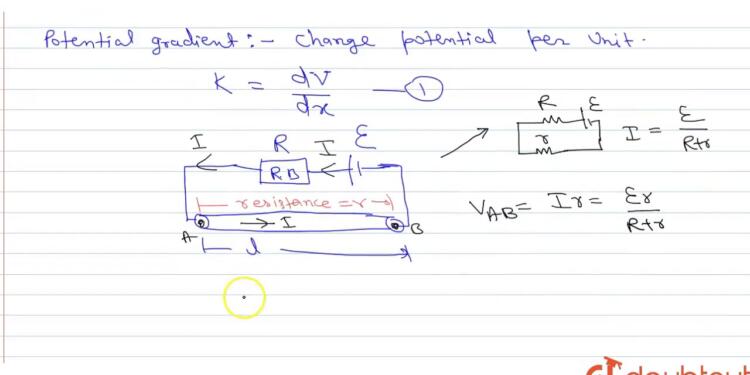 Potential gradient:- change potential per unit.
K = dV/dx — ①
I R I ε
RB
resistance = r
A → I B
l
R ε
r
I = ε/R+r
V_AB = Ir = εr/R+r
doubtnut